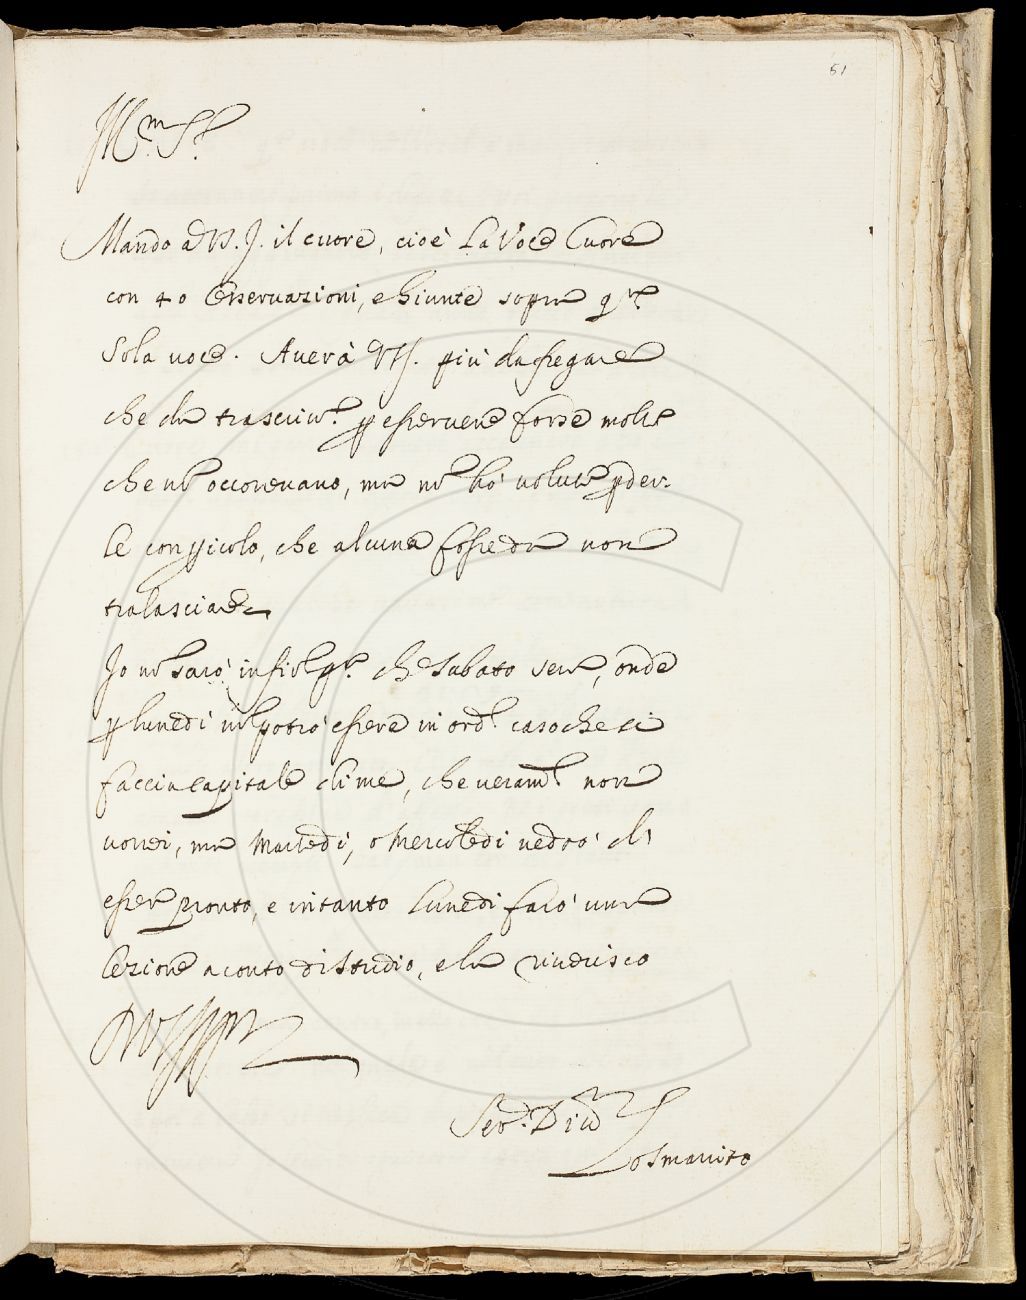 51
Ill.mo S.r
Mando a V.S. il cuore, cioè La Voce Cuore
con 40 Osservazioni, e Giunte sopra q.sta
sola voce. Averà VS. più da fregare
che da trascriv.e p esservene forse molte
che nō occorrevano, ma nō hò volute pder-
le con picolo, che alcuna fosse da non
tralasciare
Io nō sarò in fir.ze che Sabato sera, onde
p lunedì nō potrò essere in ord.e caso che si
faccia capitale di me, che veram.te non
vorrei, ma Martedì, o Mercoledì vedrò di
esser pronto, e intanto lunedì farò una
lezione a conto di Studio, e la riverisco
Di VS Ill.ma
Ser.
osmarrito